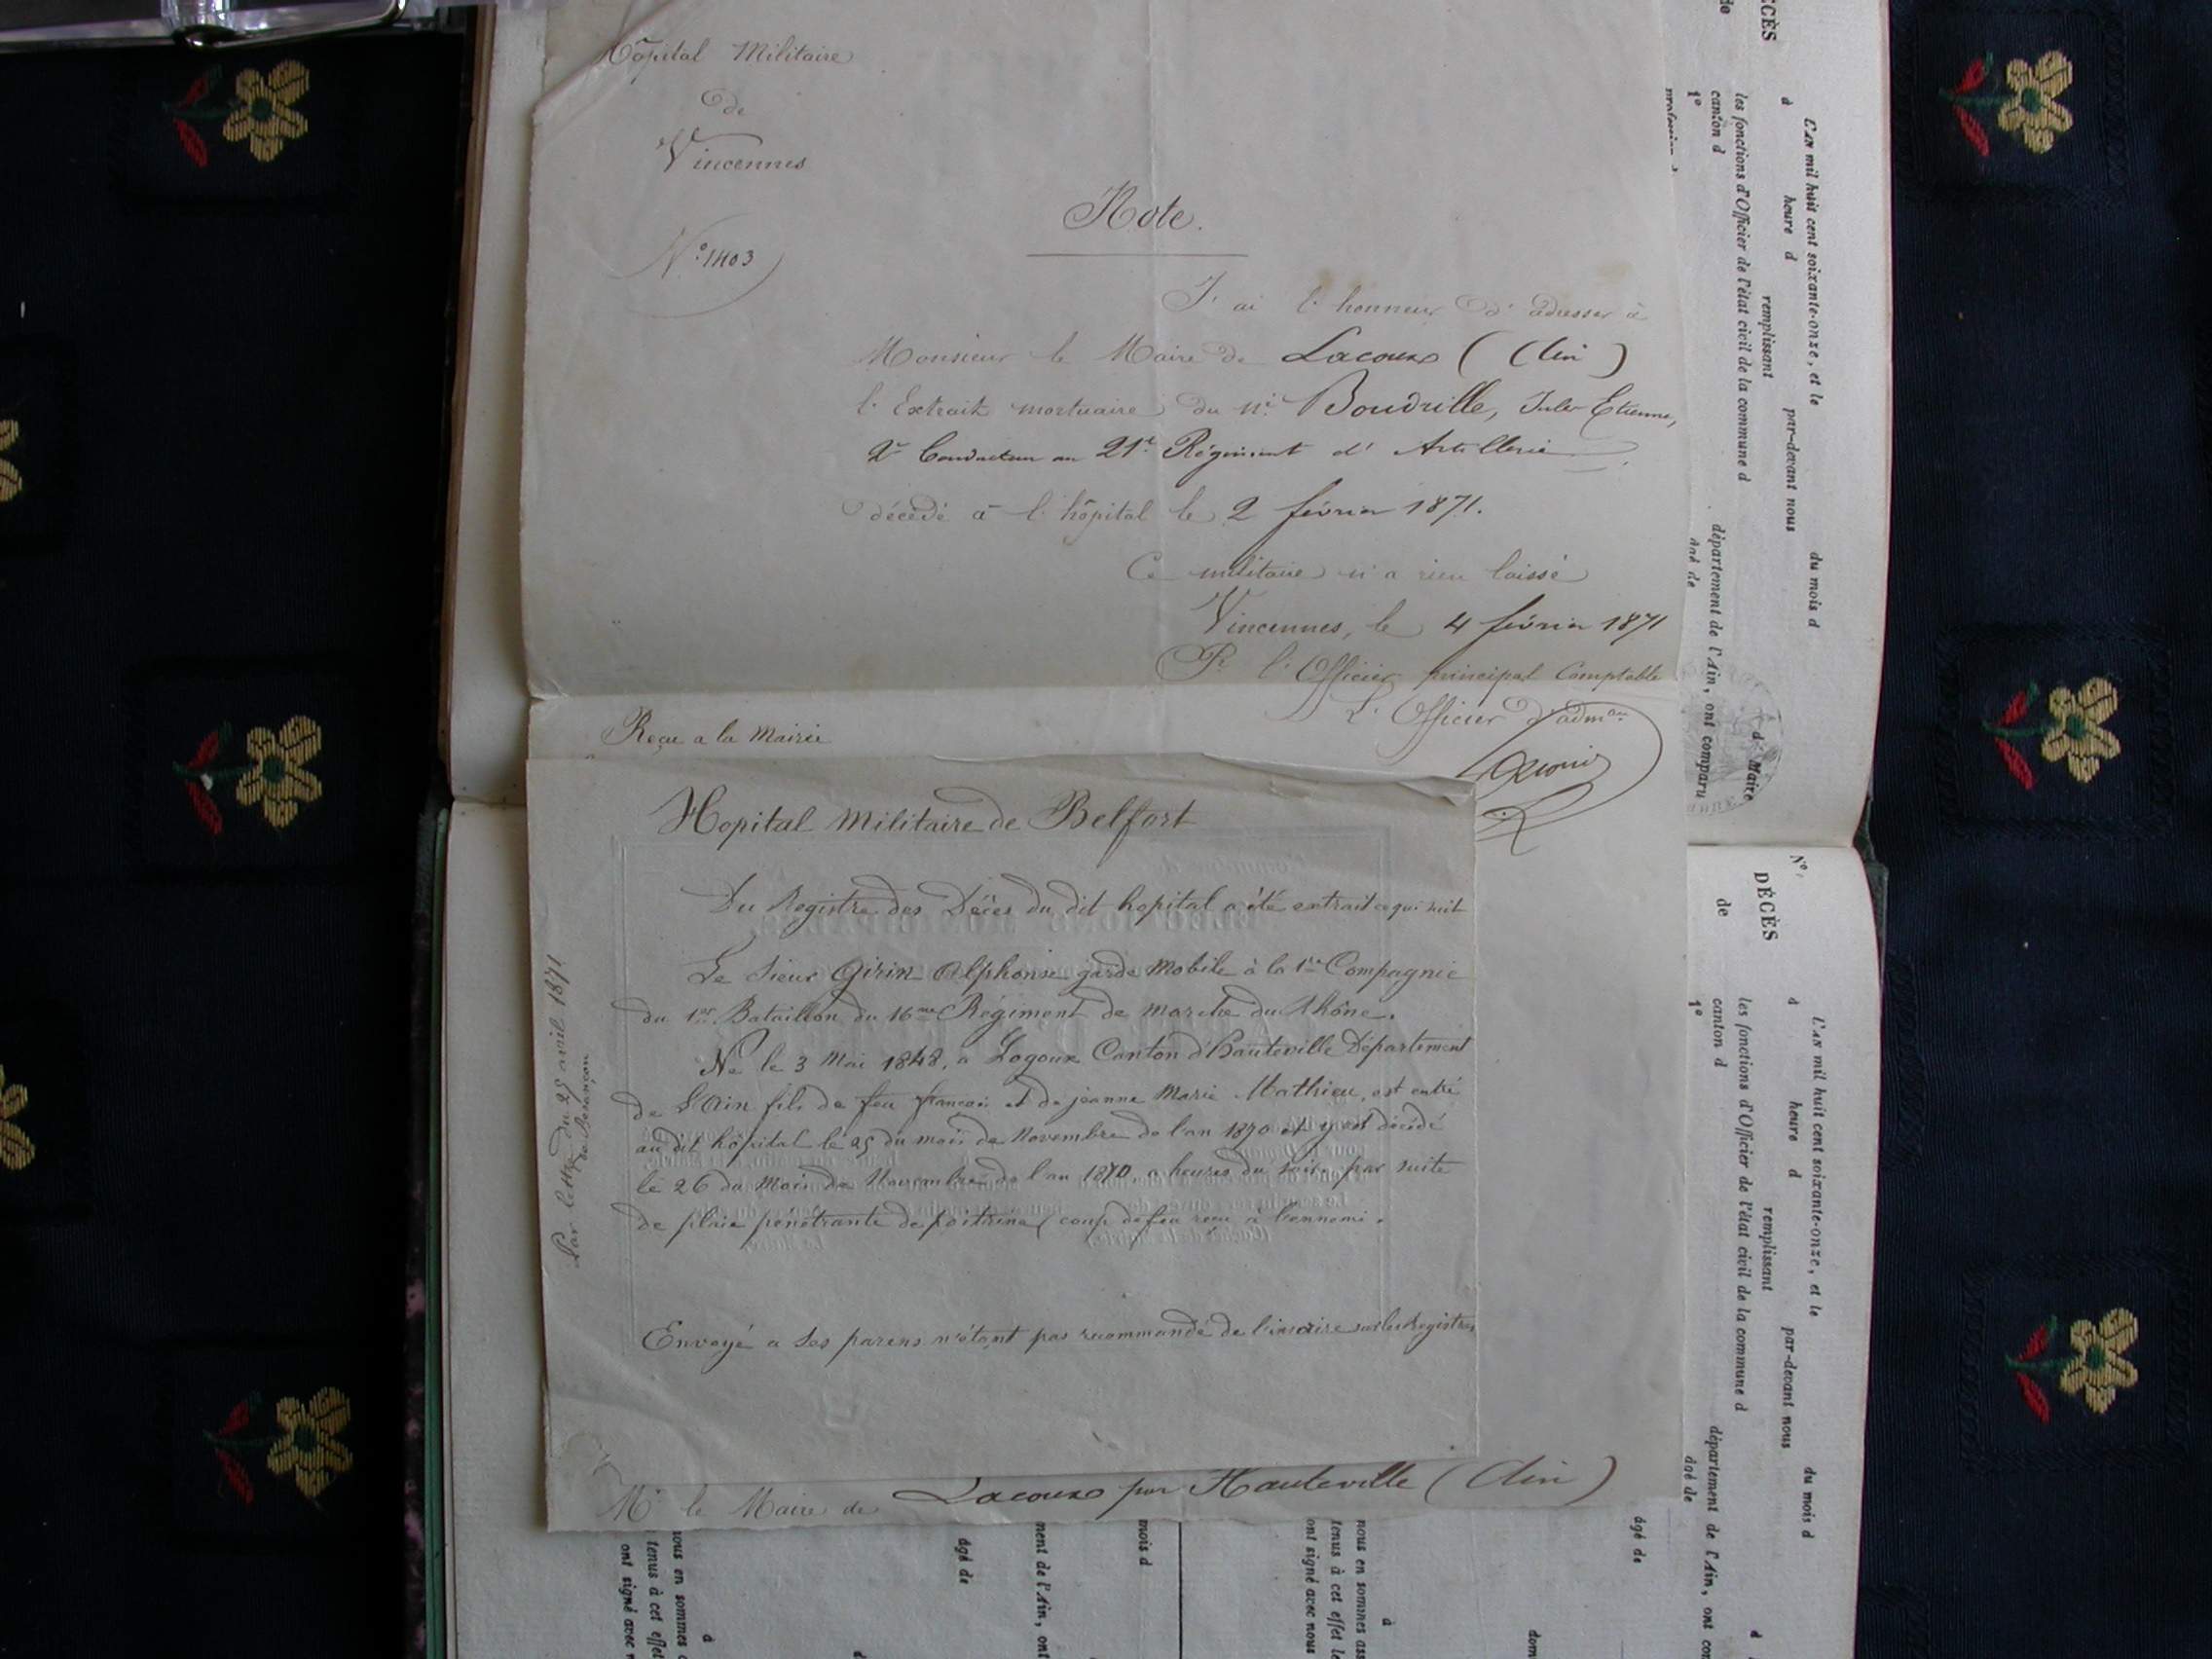 Hôpital Militaire
de
Vincennes
N° 1403
Note.
J'ai l'honneur d'adresser à
Monsieur le Maire de Lacoux (Ain)
l'Extrait mortuaire du né Boudrille, Jules Etienne,
2e Conducteur au 21e Régiment d'Artillerie
décédé à l'hôpital le 2 février 1871.
Ce militaire n'a rien laissé
Vincennes, le 4 février 1871
Pr l'Officier principal Comptable
L'Officier d'admon
Reçu a la Mairie
Hopital Militaire de Belfort
Du Registre des Décès du dit hopital a été extrait ce qui suit
Le Sieur Girin Alphonse garde Mobile à la 1re Compagnie
du 1er Bataillon du 16me Régiment de marche du Rhône.
Né le 3 Mai 1848, a Logoux Canton d'Hauteville Département
de L'Ain fils de feu françois et de jeanne Marie Mathieu, est entré
au dit hôpital le 25 du mois de Novembre de l'an 1870 et y est décédé
le 26 du Mois de Novembre de l'an 1870, a heures du soir par suite
de plaie pénétrante de poitrine (coup de feu reçu à l'ennemi.
Envoyé a ses parens n'étant pas recommandé de l'inscrire sur les Registres
Par lettre du 25 avril 1871
de Besançon
Mr le Maire de Lacoux par Hauteville (Ain)
DÉCÈS
de
L'AN mil huit cent soixante-onze, et le du mois d
à heure d par-devant nous
remplissant
les fonctions d'Officier de l'état civil de la commune d
canton d département de l'Ain, ont comparu
1° âgé de
d Maire
N°
DÉCÈS
de
L'AN mil huit cent soixante-onze, et le du mois d
à heure d par-devant nous
remplissant
les fonctions d'Officier de l'état civil de la commune d
canton d département de l'Ain, ont com
1° âgé de
âgé de
nous en sommes ass
tenus à cet effet le
ont signé avec nous
mois d
ment de l'Ain, ont
âgé de
nous en sommes
tenus à cet effet
ont signé avec